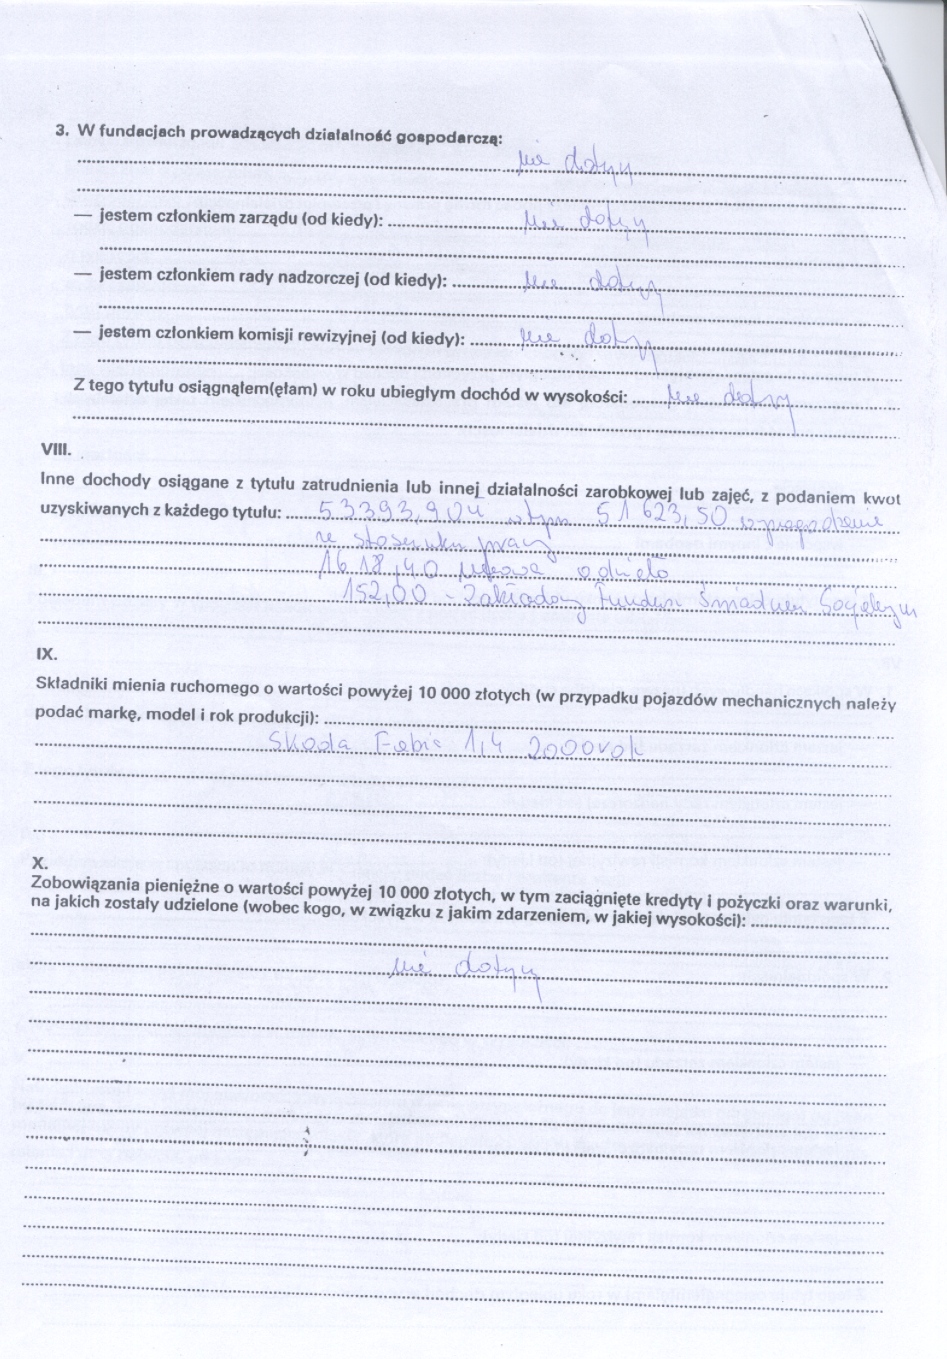 3. W fundacjach prowadzących działalność gospodarczą:
nie dotyczy
— jestem członkiem zarządu (od kiedy): nie dotyczy
— jestem członkiem rady nadzorczej (od kiedy): nie dotyczy
— jestem członkiem komisji rewizyjnej (od kiedy): nie dotyczy
Z tego tytułu osiągnąłem(ęłam) w roku ubiegłym dochód w wysokości: nie dotyczy
VIII.
Inne dochody osiągane z tytułu zatrudnienia lub innej działalności zarobkowej lub zajęć, z podaniem kwot
uzyskiwanych z każdego tytułu: 53393,90 zł w tym 51623,50 wynagrodzenie
ze stosunku pracy
1618,40 umowa o dzieło
152,00 - Zakładowy Fundusz Świadczeń Socjalnych
IX.
Składniki mienia ruchomego o wartości powyżej 10 000 złotych (w przypadku pojazdów mechanicznych należy
podać markę, model i rok produkcji):
Skoda Fabia 1,4 2000 rok
X.
Zobowiązania pieniężne o wartości powyżej 10 000 złotych, w tym zaciągnięte kredyty i pożyczki oraz warunki,
na jakich zostały udzielone (wobec kogo, w związku z jakim zdarzeniem, w jakiej wysokości):
nie dotyczy